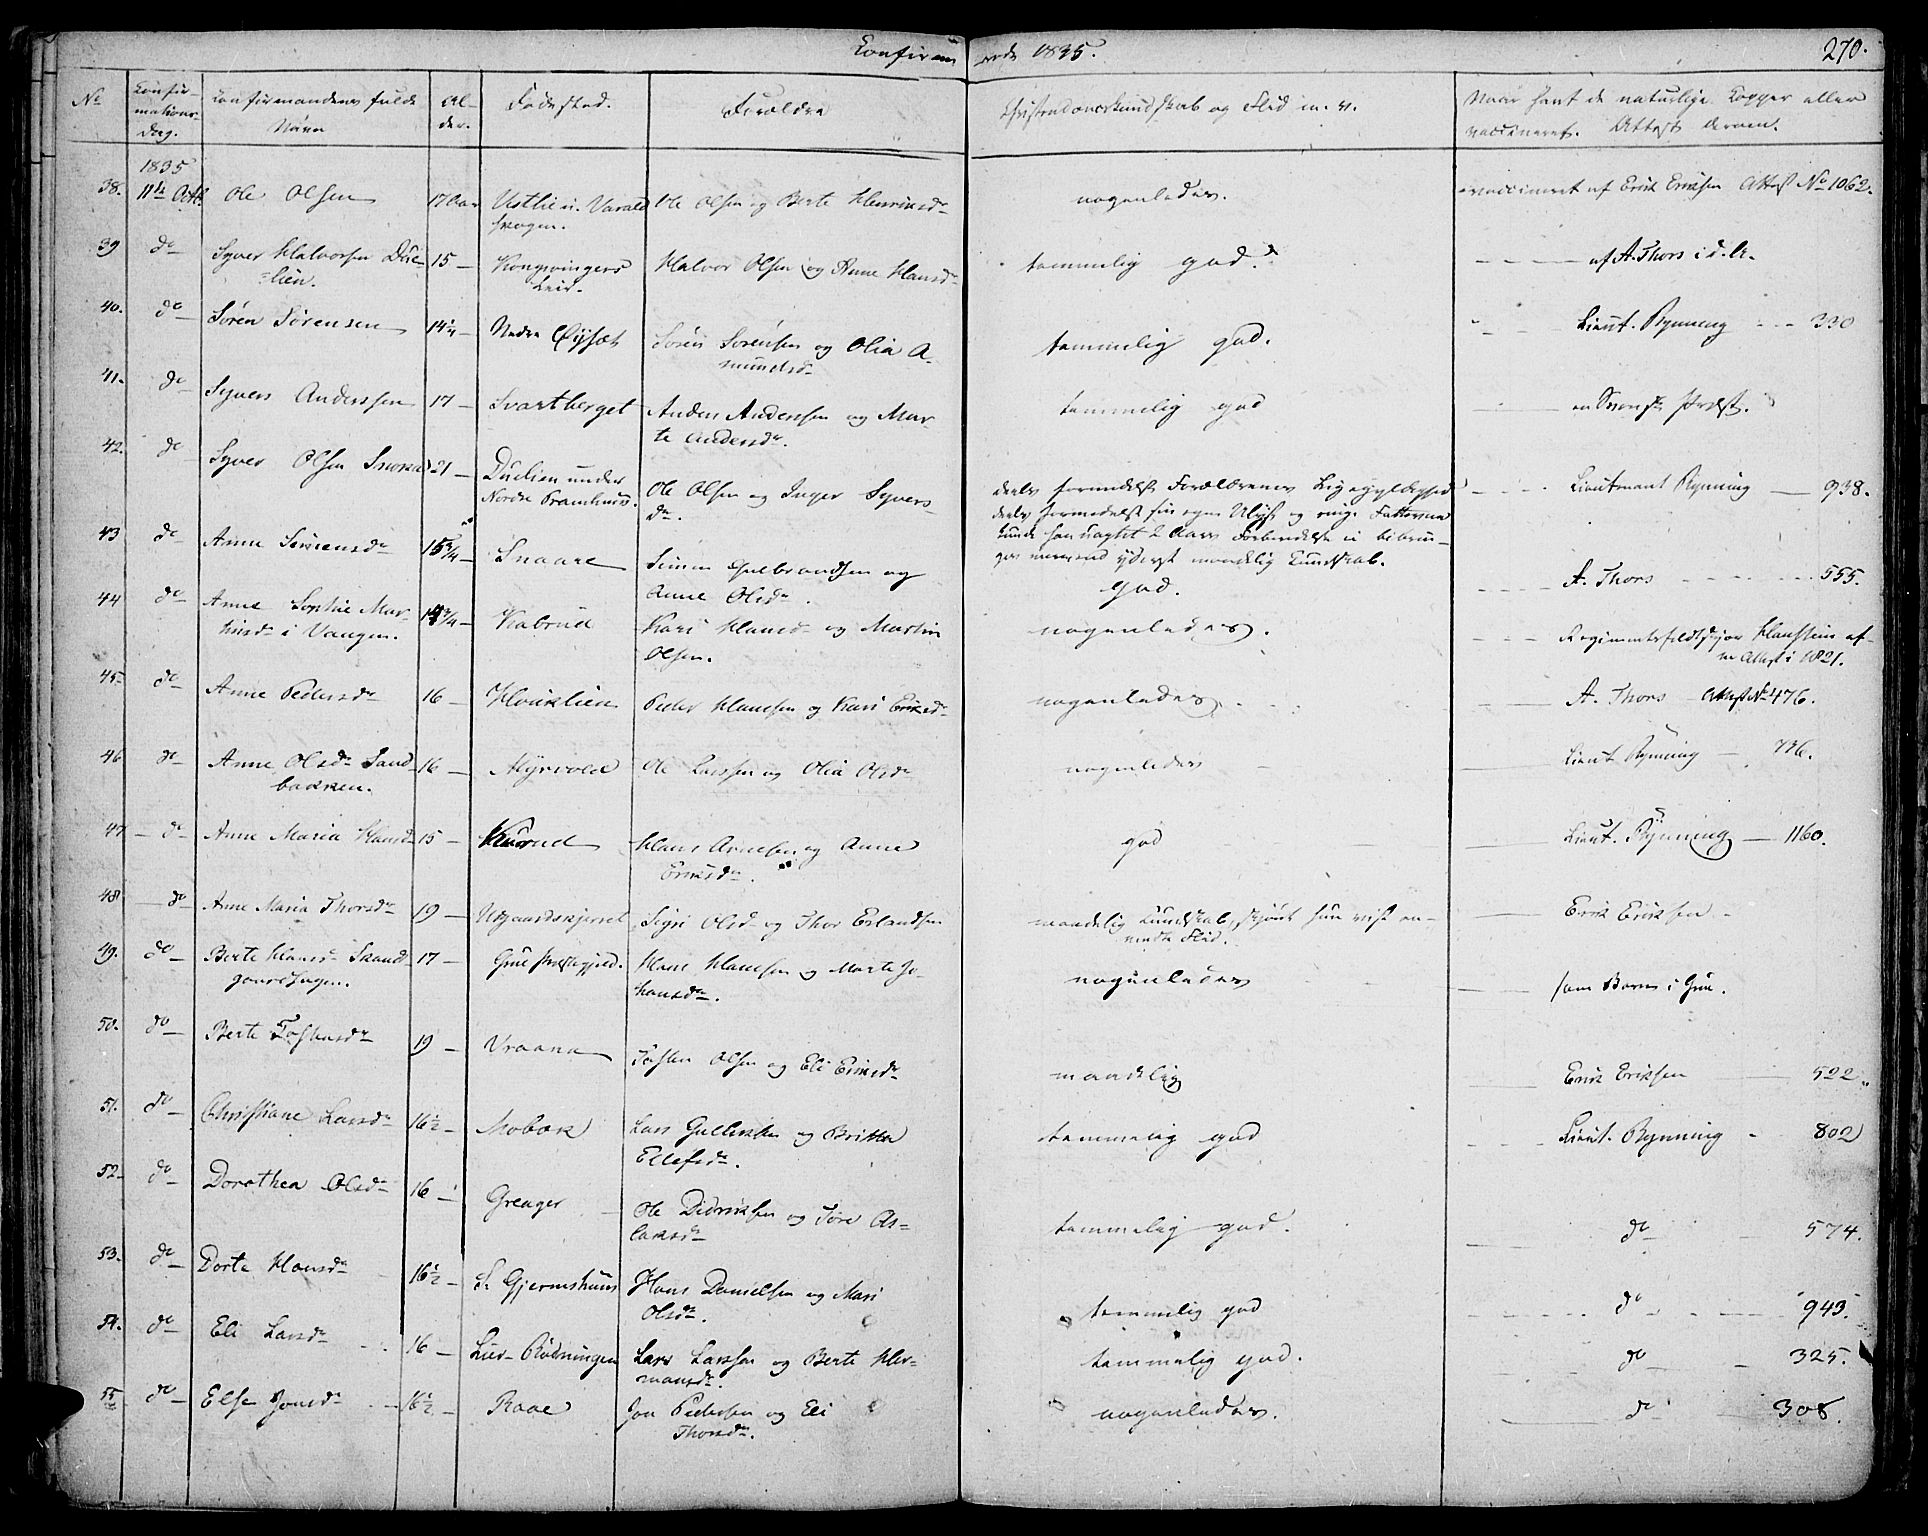 Confirmerede 1835. 270.
No
Confirmations Dag.
Confirmandens fulde Navn
Alder.
Fødested.
Forældre
Christendomskundskab og Flid m. v.
Naar havt de naturlige Kopper eller vaccineret. Attest derom.
1835
38. 11te Octb. Ole Olsen 17 Aar Vestlie i Varaldskogen. Ole Olsen og Berte Henriksdr nogenledes. vaccineret af Erik Eriksen Attest No 1062.
39 do Syver Halvorsen Duelien. 15 Kongsvingers Leir. Halvor Olsen og Anne Hansdr temmelig god. af A. Thors i d. A.
40. do Søren Sørensen 14½ Nedre Øysæt Søren Sørensen og Olia Amundsdr temmelig god. Lieut. Rynning 330
41. do Syver Anderssen 17 Svartberget Anders Anderssen og Marte Andersdr. temmelig god en Svensk Præst.
42. do Syver Olsen 21 Duelien under Nordre Pramhuus. Ole Olsen og Inger Syversdr. deels formedelst Forældrenes Ligegyldighed deels formedelst sin egen og Fattigdom kunde han uagtet 2 Aars Forberedelse ei bibringes mere end yderst maadelig Kundskab. Lieutenant Rynning 938.
43 do Anne Simensdr 15¾ Snaare Simen Gulbrandsen og Anne Olsdr. god. A. Thors 555.
44 do Anne Sophie Martinsdr i Vangen. 14¾ Kabrud Kari Hansdr og Martin Olsen. nogenledes. Regimentsfeldtskjær Hanstein Attest i 1821.
45 do Anne Pedersdr 16 Hvirklien Peder Hansen og Kari Eriksdr nogenledes. A. Thors Attest No 476.
46 do Anne Olsdr Sandbakken. 16 Myrvold Ole Larssen og Olia Olsdr nogenledes Lieut Rynning 776.
47 do Anne Maria Hansdr 15 Kurud Hans Arnesen og Anne Eriksdr. god Lieut. Rynning 1160.
48 do Anne Maria Thorsdr 19 Sigri Olsdr og Thor Erlandsen maadelig Kundskab, skjønt hun viste anvendt Flid. Erik Eriksen
49. do Berte Hansdr 17 Grue Præstegjeld. Hans Hansen og Marte Johansdr. nogenledes som Barn i Grue.
50. do Berte Tostensdr 19 Vraana Tosten Olsen og Eli Eriksdr maadelig Erik Eriksen 522.
51. do Christiane Larsdr 16½ Mobæk Lars Gulliksen og Britha Ellefsdr. temmelig god Lieut. Rynning 802
52 do Dorthea Olsdr 16 Grenager Ole Didriksen og Tore Aslaksdr temmelig god. do 574.
53. do Dorte Hansdr 16½ S. Gjermshuus Hans Danielsen og Mari Olsdr. temmelig god do 943.
54. do Eli Larsdr 16 Lier-Rødningen Lars Larssen og Berte Hermansdr. temmelig god. do 325.
55 do Else Jonsdr 16½ Raae Jon Pedersen og Eli Thorsdr. nogenledes. do 308.